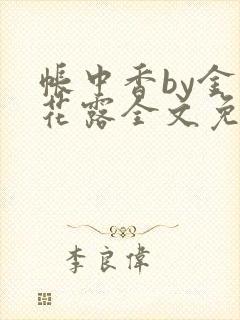 帳中香by金
花露全文免
李良偉